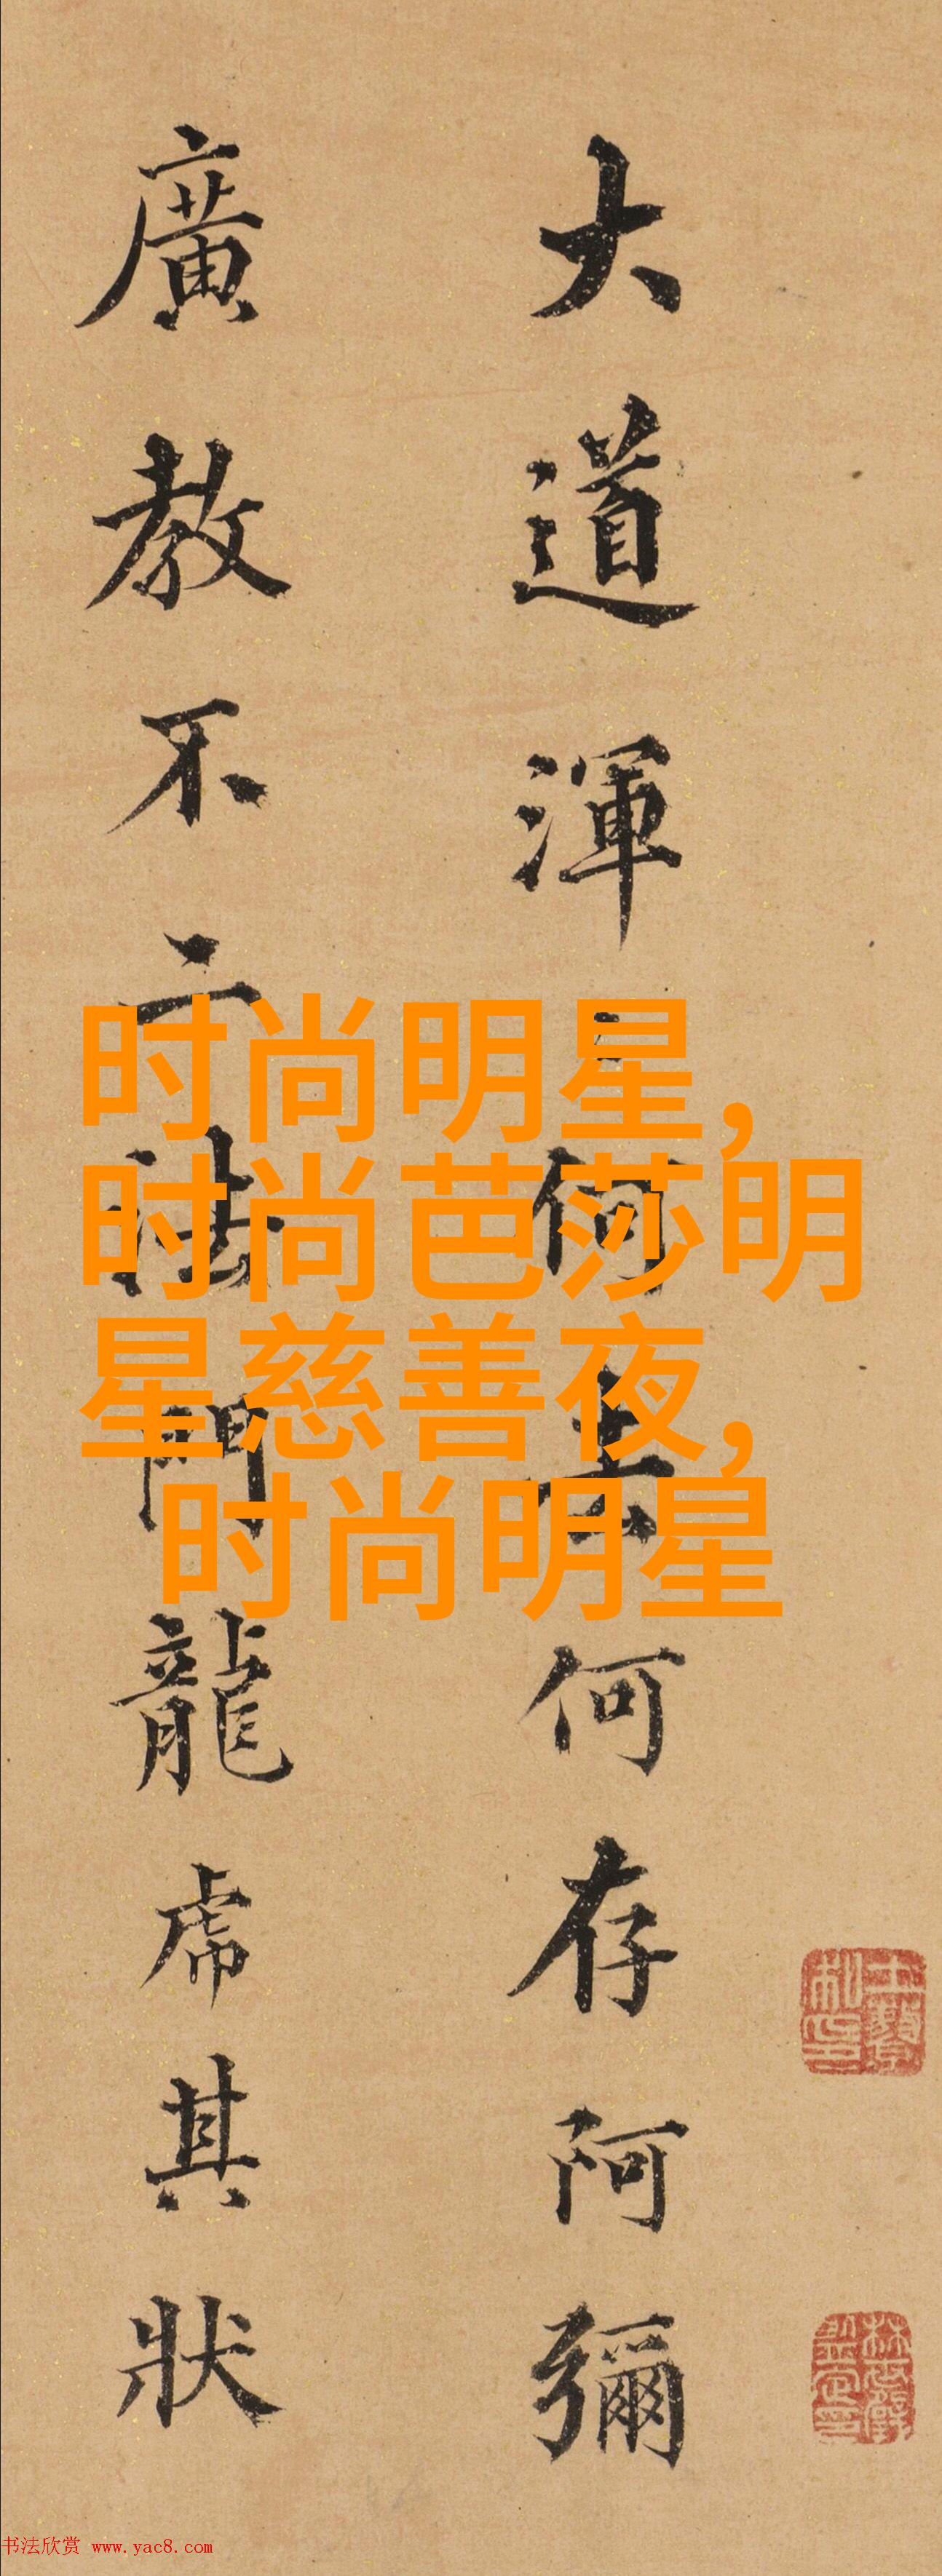 大道渾〻何去何存阿彌
廣教不二法門龍虎其狀
时尚明星,
时尚芭莎明
星慈善夜,
时尚明星
书法欣赏 www.yac8.com